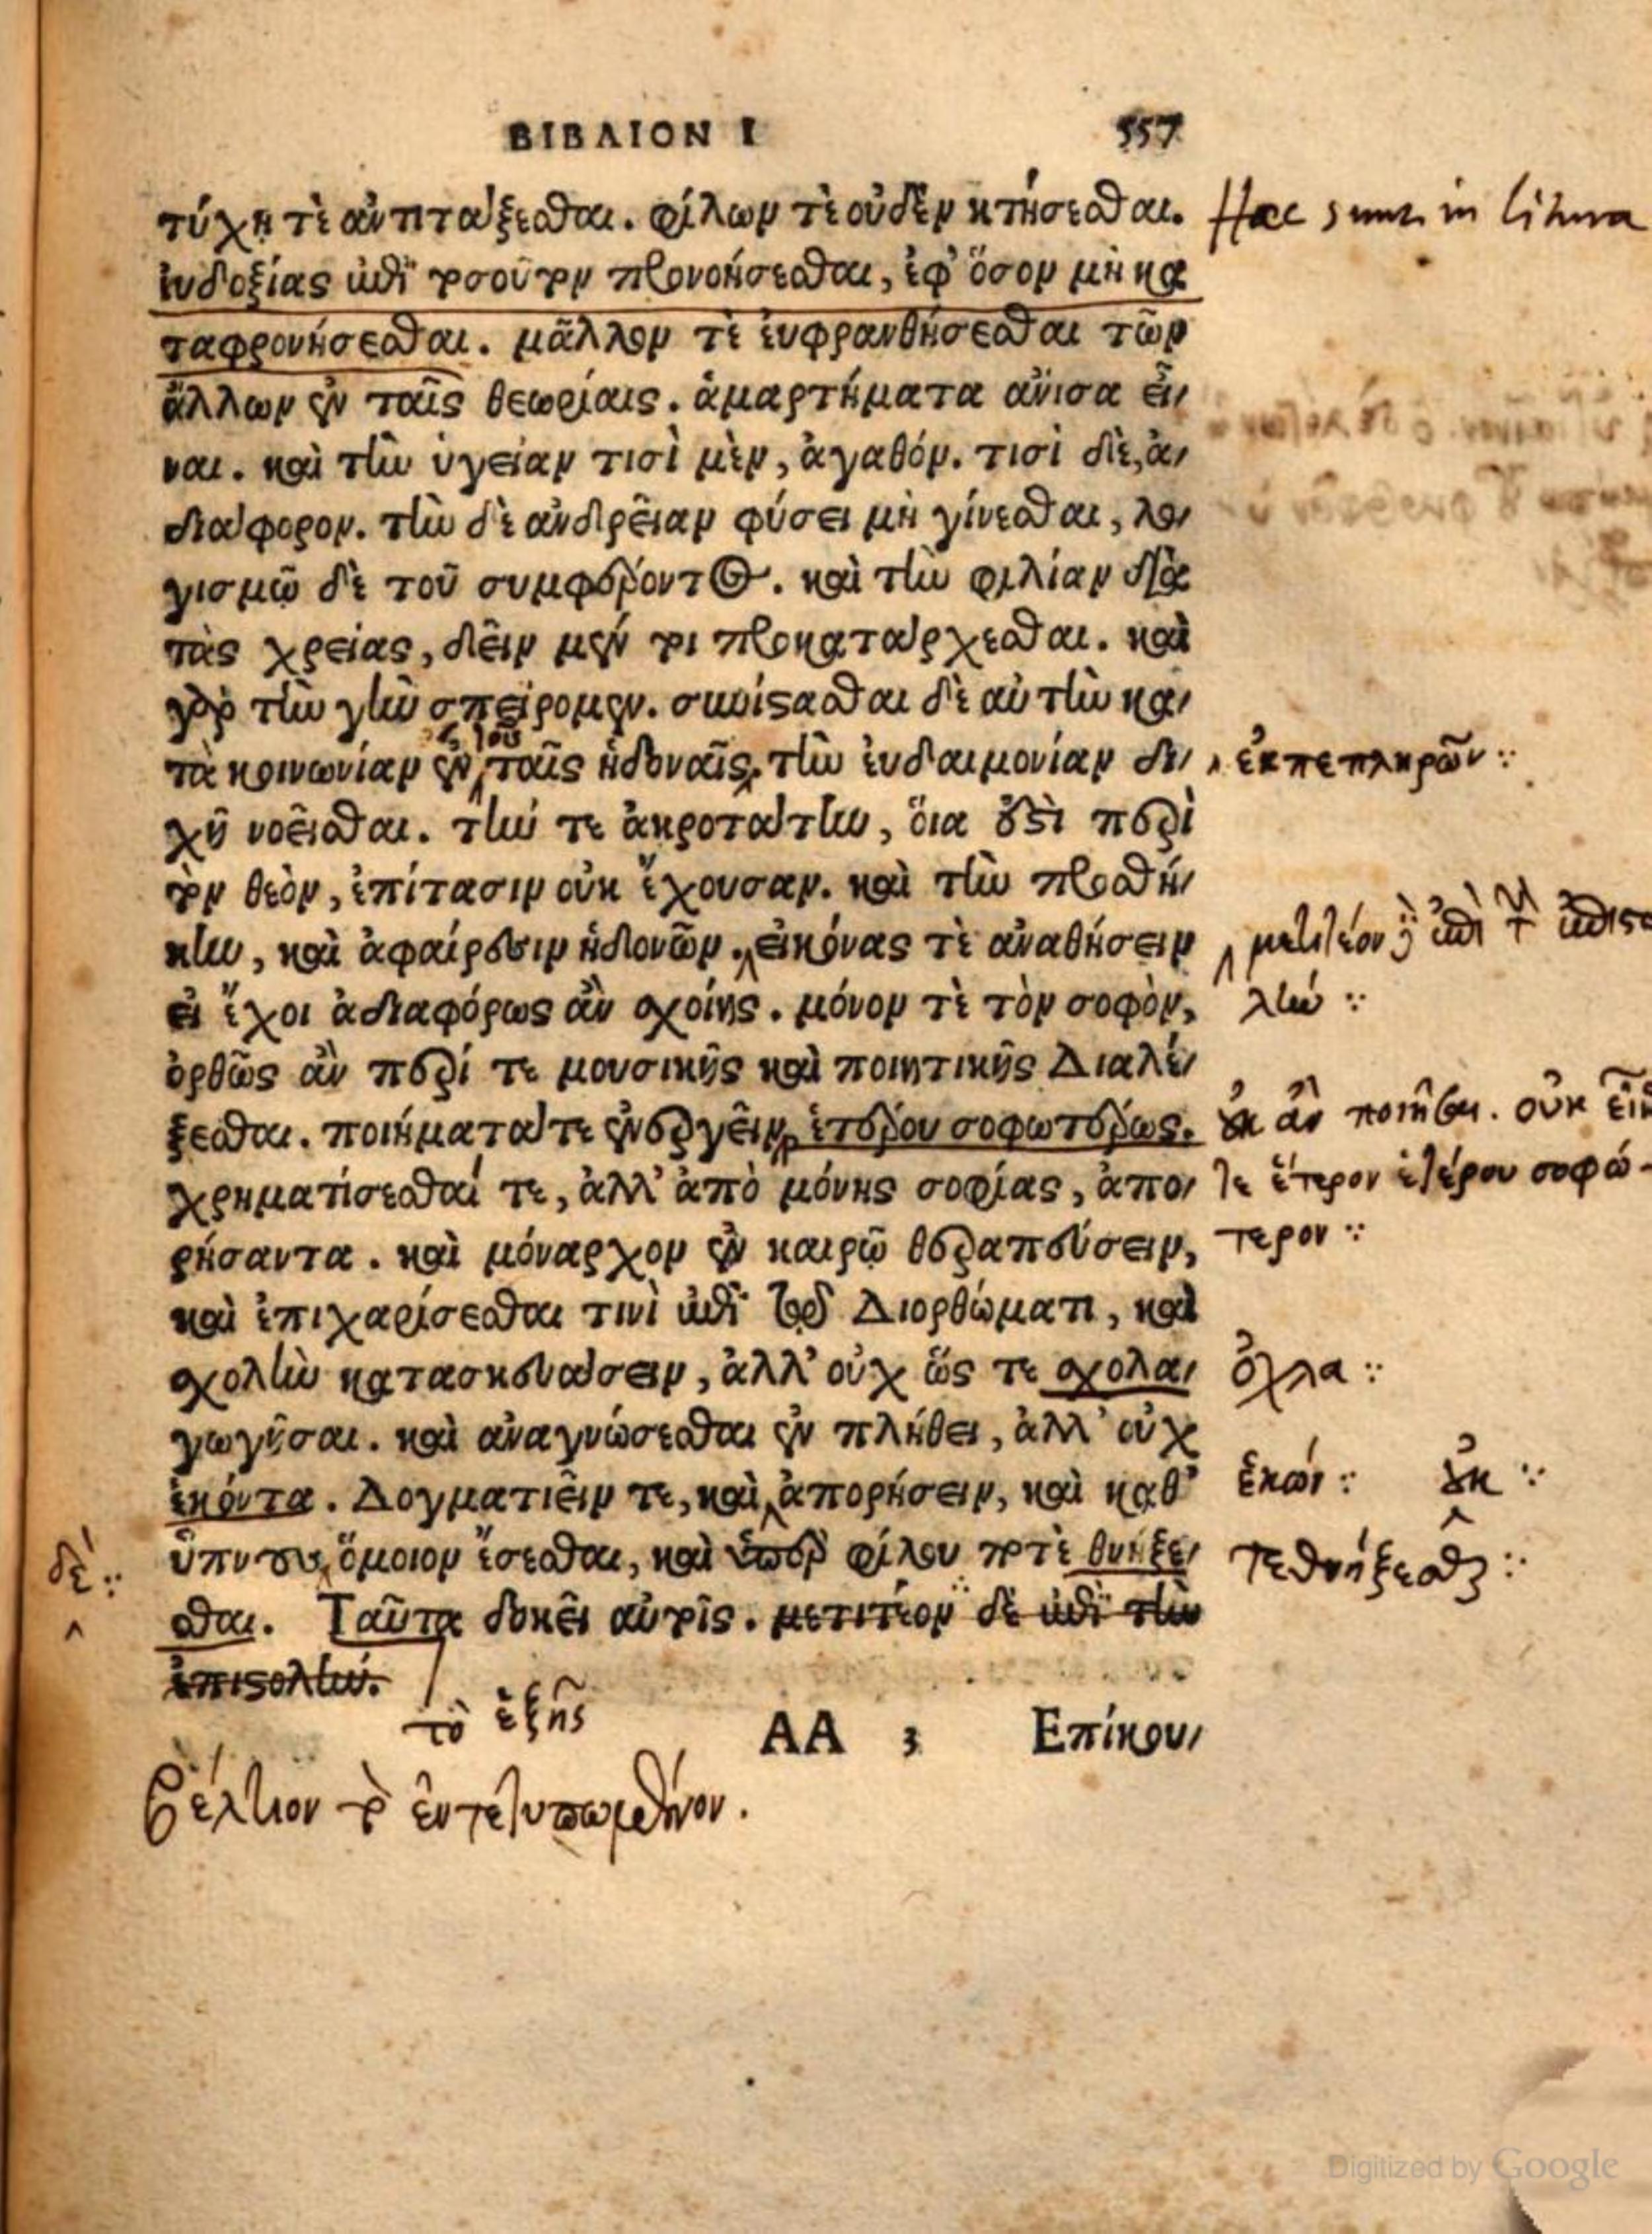 ΒΙΒΛΙΟΝ Ι 557
τύχῃ τὲ ἀντιτάξεσθαι. φίλων τὲ οὐδὲν κτήσεσθαι.
Hæc sunt in litura
ἐυδοξίας ἐπὶ τοσοῦτον προνοήσεσθαι, ἐφ' ὅσον μὴ κα
ταφρονήσεσθαι. μᾶλλον τὲ ἐυφρανθήσεσθαι τῶν
ἄλλων ἐν ταῖς θεωρίαις. ἁμαρτήματα ἄνισα εἶ-
ναι. καὶ τὴν ὑγείαν τισὶ μὲν, ἀγαθόν. τισὶ δὲ, ἀ-
διάφορον. τὴν δὲ ἀνδρείαν φύσει μὴ γίνεσθαι, λο-
γισμῷ δὲ τοῦ συμφέροντος. καὶ τὴν φιλίαν διὰ
τὰς χρείας, δεῖν μέν τι προκατάρχεσθαι. καὶ
γὰρ τὴν γῆν σπείρομεν. συνίστασθαι δὲ αὐτὴν κα-
τὰ κοινωνίαν ἐν ταῖς ἡδοναῖς. τὴν ἐυδαιμονίαν δι-
ἐκπεπληρῶν
χῇ νοεῖσθαι. τήν τε ἀκροτάτην, ὅια ἐστὶ περὶ
τὸν θεὸν, ἐπίτασιν οὐκ ἔχουσαν. καὶ τὴν προσθή-
κην, καὶ ἀφαίρεσιν ἡδονῶν. εἰκόνας τὲ ἀναθήσειν
λήν
εἰ ἔχοι ἀδιαφόρως ἂν σχοίης. μόνον τὲ τὸν σοφὸν,
ὀρθῶς ἂν περί τε μουσικῆς καὶ ποιητικῆς Διαλέ-
ξεσθαι. ποιήματά τε ἐνεργεῖν, ἑτέρου σοφωτέρως.
οὐκ ἂν ποιῆσαι. οὐκ εἶν
χρηματίσεσθαί τε, ἀλλ' ἀπὸ μόνης σοφίας, ἀπο-
τε ἕτερον ἑτέρου σοφώ-
ρήσαντα. καὶ μόναρχον ἐν καιρῷ θεραπεύσειν,
τερον
καὶ ἐπιχαρίσεσθαι τινὶ ἐπὶ τῷ Διορθώματι, καὶ
σχολὴν κατασκευάσειν, ἀλλ' οὐχ ὥς τε σχολα-
ὄχλα
γωγῆσαι. καὶ ἀναγνώσεσθαι ἐν πλήθει, ἀλλ' οὐχ
ἑκόντα. Δογματιεῖν τε, καὶ ἀπορήσειν, καὶ καθ'
ἑκών οὐκ
ὕπνους, ὅμοιον ἔσεσθαι, καὶ ὑπὲρ φίλου ποτὲ θνήξε-
δέ
τεθνήξεσθαι
σθαι. Ταῦτα δοκεῖ αὐτοῖς. μετιτέον δὲ ἐπὶ τὴν
ἐπιστολήν.
τὸ ἑξῆς
ΑΑ 3 Επίκου-
βέλτιον τὸ ἐντετυπωμένον.
Digitized by Google